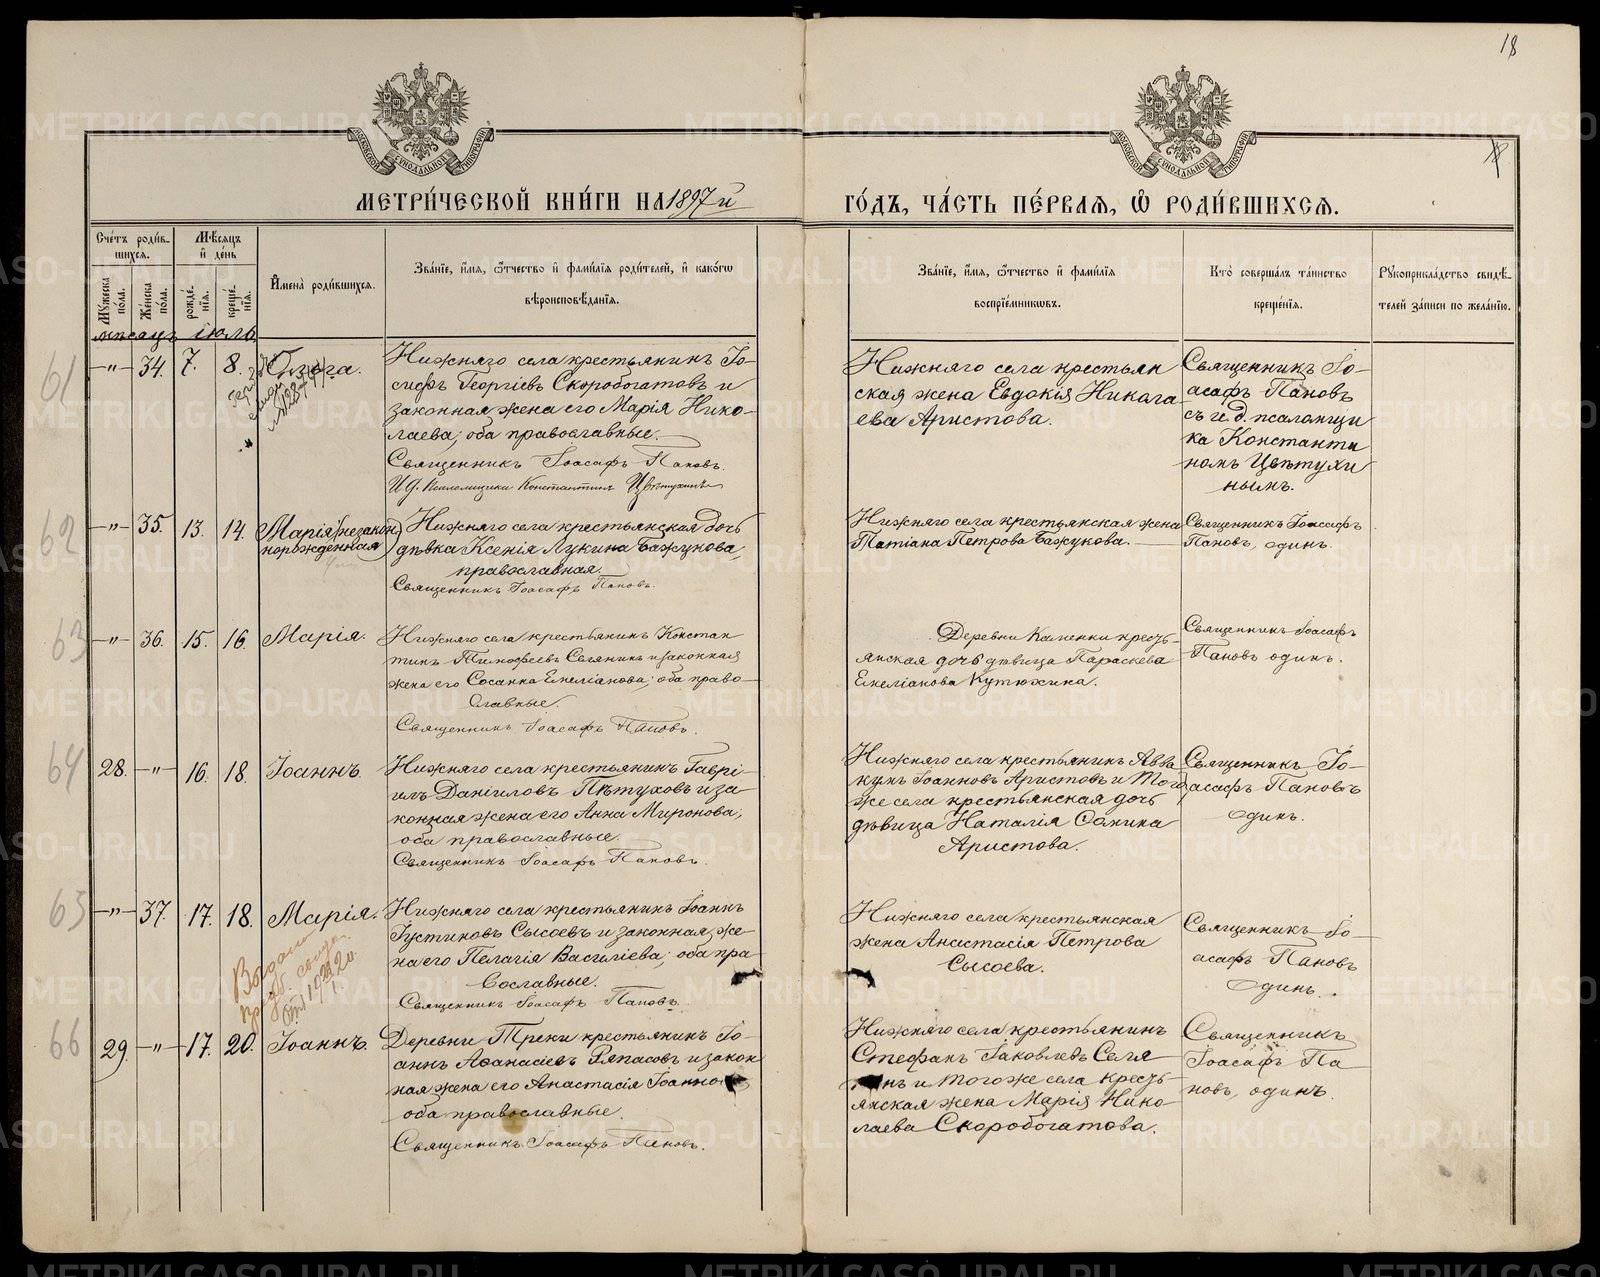 18
МЕТРИ́ЧЕСКОЙ КНИ́ГИ НА 1897 й ГО́ДЪ, ЧА́СТЬ ПЕ́РВАЯ, Ѡ҆ РОДИ́ВШИХСЯ.
Сче́тъ роди́в-
шихся.
Мꙋ́жеска по́ла.
Же́нска по́ла.
Мѣ́сяцъ
и҆ де́нь
рожде́-
нїя.
креще́-
нїя.
И҆мена̀ роди́вшихся.
Зва́нїе, и҆́мя, ѻ҆́тчество и҆ фами́лїя роди́телей, и҆ како́гѡ
вѣроисповѣ́данїя.
Зва́нїе, и҆́мя, ѻ҆́тчество и҆ фами́лїя
воспрїе́мниковъ.
Кто̀ соверша́лъ та́инство
креще́нїя.
Рꙋкоприкла́дство свидѣ́-
телей за́писи по жела́нїю.
мѣсяцъ іюль
61
-"- 34. 7. 8. Ольга.
Нижняго села крестьянинъ Іо-
сифъ Георгіевъ Скоробогатовъ и
законная жена его Марія Нико-
лаева; оба православные.
Священникъ Іоасафъ Пановъ.
И.д. Псаломщика Константинъ Цвѣтухинъ
Нижняго села крестьян
ская жена Евдокія Никола
ева Аристова.
Священникъ Іо-
асафъ Пановъ
съ и.д. псаломщи
ка Константи
номъ Цвѣтухи
нымъ.
62
-"- 35. 13. 14. Марія (незакон
норожденная)
Нижняго села крестьянская дочь
дѣвка Ксенія Лукина Бажукова,
православная.
Священникъ Іоасафъ Пановъ.
Нижняго села крестьянская жена
Татіана Петрова Бажукова.
Священникъ Іоасафъ
Пановъ, одинъ.
63
-"- 36. 15. 16. Марія.
Нижняго села крестьянинъ Констан
тинъ Тимофеевъ Селянинъ и законная
жена его Сосанна Емеліанова; оба право-
славные.
Священникъ Іоасафъ Пановъ.
Деревни Каменки кресть-
янская дочь дѣвица Параскева
Емеліанова Кутюхина.
Священникъ Іоасафъ
Пановъ одинъ.
64
28. -"- 16. 18. Іоаннъ.
Нижняго села крестьянинъ Гаврі-
илъ Даніиловъ Пѣтуховъ и за
конная жена его Анна Миронова;
оба православные.
Священникъ Іоасафъ Пановъ.
Нижняго села крестьянинъ Авва
кумъ Іоанновъ Аристовъ и того
же села крестьянская дочь
дѣвица Наталія Сомина
Аристова.
Священникъ Іо-
асафъ Пановъ
одинъ.
65
-"- 37. 17. 18. Марія.
Нижняго села крестьянинъ Іоаннъ
Іустиновъ Сысоевъ и законная же
на его Пелагія Василіева; оба пра
вославные.
Священникъ Іоасафъ Пановъ.
Нижняго села крестьянская
жена Анастасія Петрова
Сысоева.
Священникъ Іо-
асафъ Пановъ
одинъ.
66
29. -"- 17. 20. Іоаннъ.
Деревни Треки крестьянинъ Іо-
аннъ Аѳанасіевъ Ряпасовъ и закон
ная жена его Анастасія Іоанно
оба православные.
Священникъ Іоасафъ Пановъ.
Нижняго села крестьянинъ
Стефанъ Іаковлевъ Селя
нъ и того же села кресть-
янская жена Марія Нико
лаева Скоробогатова.
Священникъ
Іоасафъ Па
новъ, одинъ.
METRIKI.GASO-URAL.RU